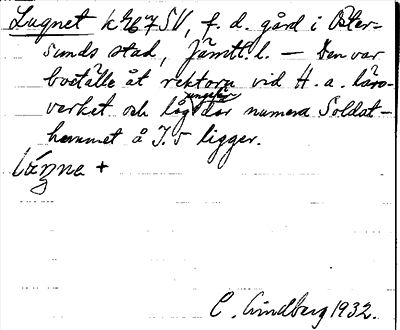 Lugnet k 767 SV, f. d. gård i Öster-
sunds stad, Jämtl. l. — Den var
boställe åt rektorn vid H. a. läro-
verket och låg ungefär där numera Soldat-
hemmet å I. 5 ligger.
lúŋna +
C. Lindberg 1932.